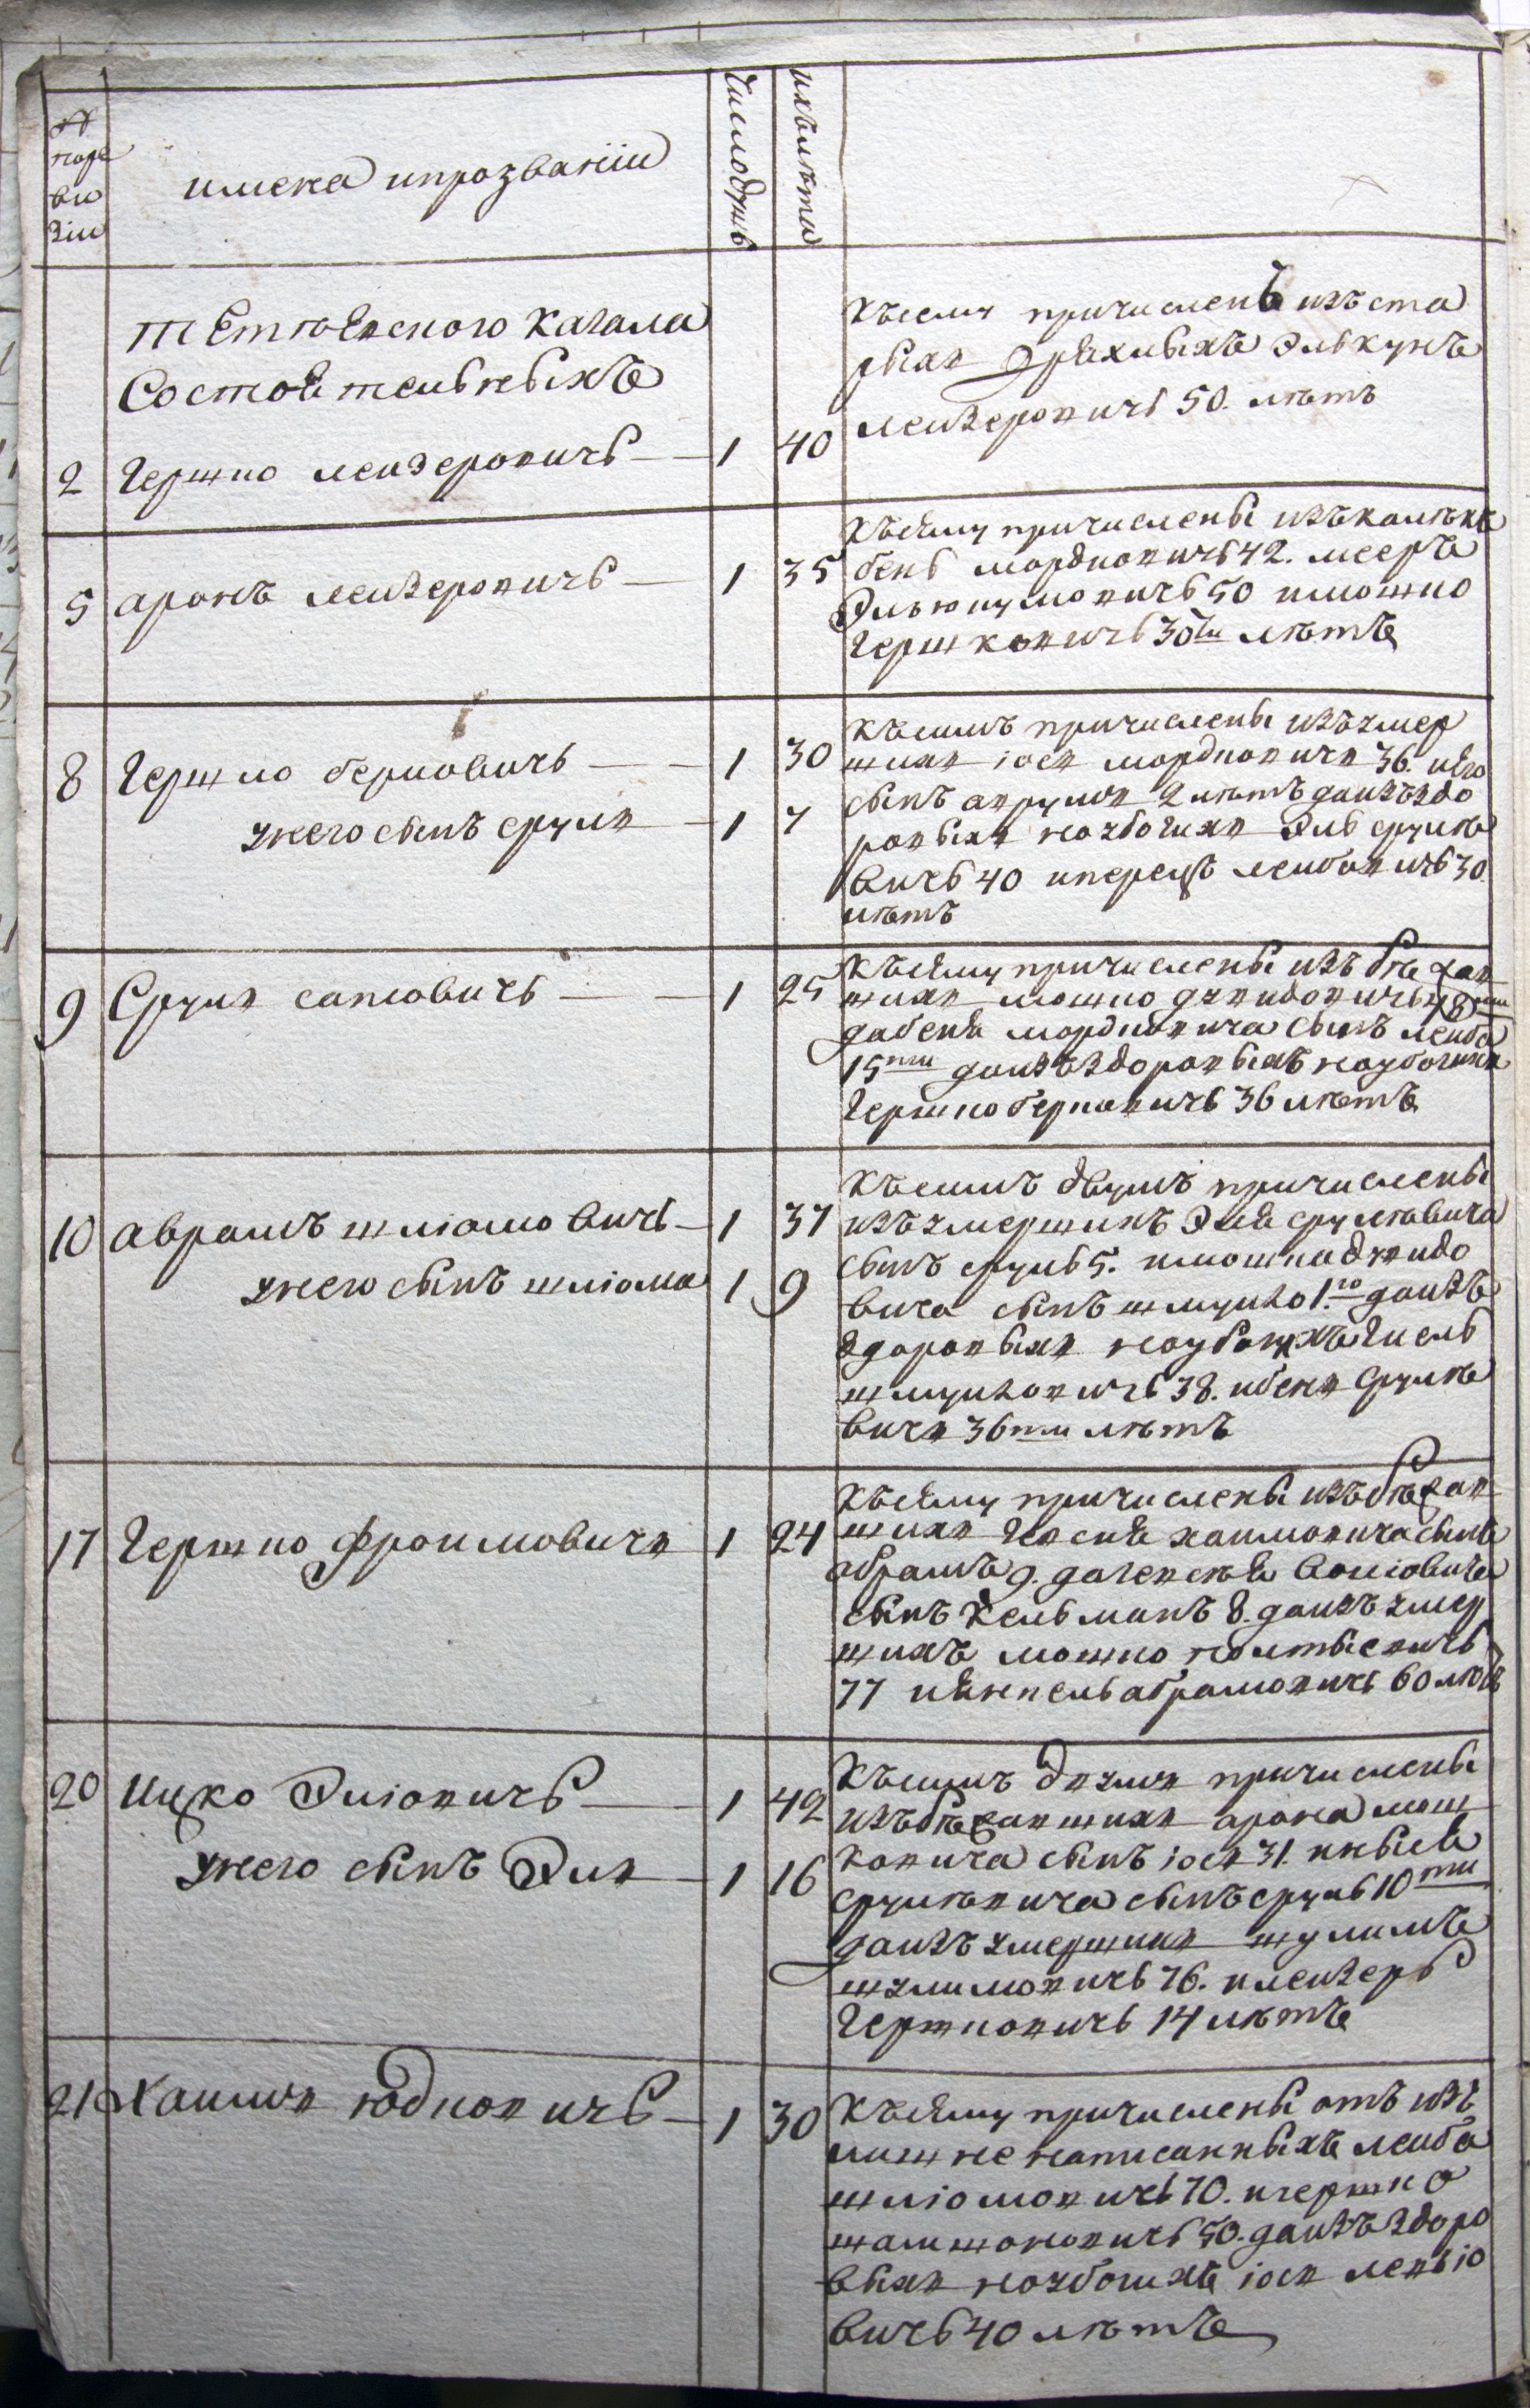 №
по ре
ви
зіи
имена и прозваніи
число душъ
ихъ лѣта
Тетіевского кагала
состоятельныхъ
Къ сему причисленъ изъ ста
рыхъ дряхлыхъ Элькунъ
лейзеровичь 50. лѣтъ
2 Гершко лейзеровичь 1 40
5 аронъ лейзеровичь 1 35
Къ сему причислены изъ калѣкъ
бень мордковичь 42. мееръ
Эльюкумовичь 50 и мошко
Гершковичь 30ти лѣтъ
8 Гершко берковичь 1 30
у него сынъ сруль 1 7
Къ симъ причислены изъ умер
шихъ іось мордковичъ 36. и его
сынъ аврумъ 2 лѣтъ да изъ здо
ровыхъ но убогихъ Эль сруле
вичь 40 и перецъ лейбовичь 30
лѣтъ
9 Сруль саповичь 1 25
Къ сему причислены изъ бѣжав
шихъ мошко дувидовичь 48ми
да беня мордковича сынъ лейба
15ти да изъ здоровыхъ но убогихъ
Гершко берковичь 36 лѣтъ
10 аврамъ шліомовичь 1 37
у него сынъ шліома 1 9
Къ симъ двумъ причислены
изъ умершихъ Эля срулевича
сынъ сруль 5. и мошка дувидо
вича сынъ шмуило 1го да изъ
здоровыхъ но убогихъ Гисель
шмуиловичь 38. и бень сруле
вичъ 36ти лѣтъ
17 Гершко фроимовичъ 1 24
Къ сему причислены изъ бѣжав
шихъ іося хаимовича сынъ
абрамъ 9. да евсѣя волювича
сынъ Кельманъ 8. да изъ умер
шихъ мошко
77 и янкель абрамовичь 60 лѣтъ
20 Ицко Эліовичь 1 42
у него сынъ Эль 1 16
Къ симъ двумъ причислены
изъ бѣжавшихъ арона мош
ковича сынъ іось 31. и
срулевича сынъ сруль 10ти
да изъ умершихъ шулимъ
шулимовичь 76. и лейзеръ
Гершковичь 14 лѣтъ
21 Хаимъ юдковичь 1 30
Къ сему причислены отъ изъ
лишне написанныхъ лейба
шліомовичь 70. и гершко
шамшоновичь 50. да изъ здоро
выхъ но убогихъ іось левіо
вичь 40 лѣтъ